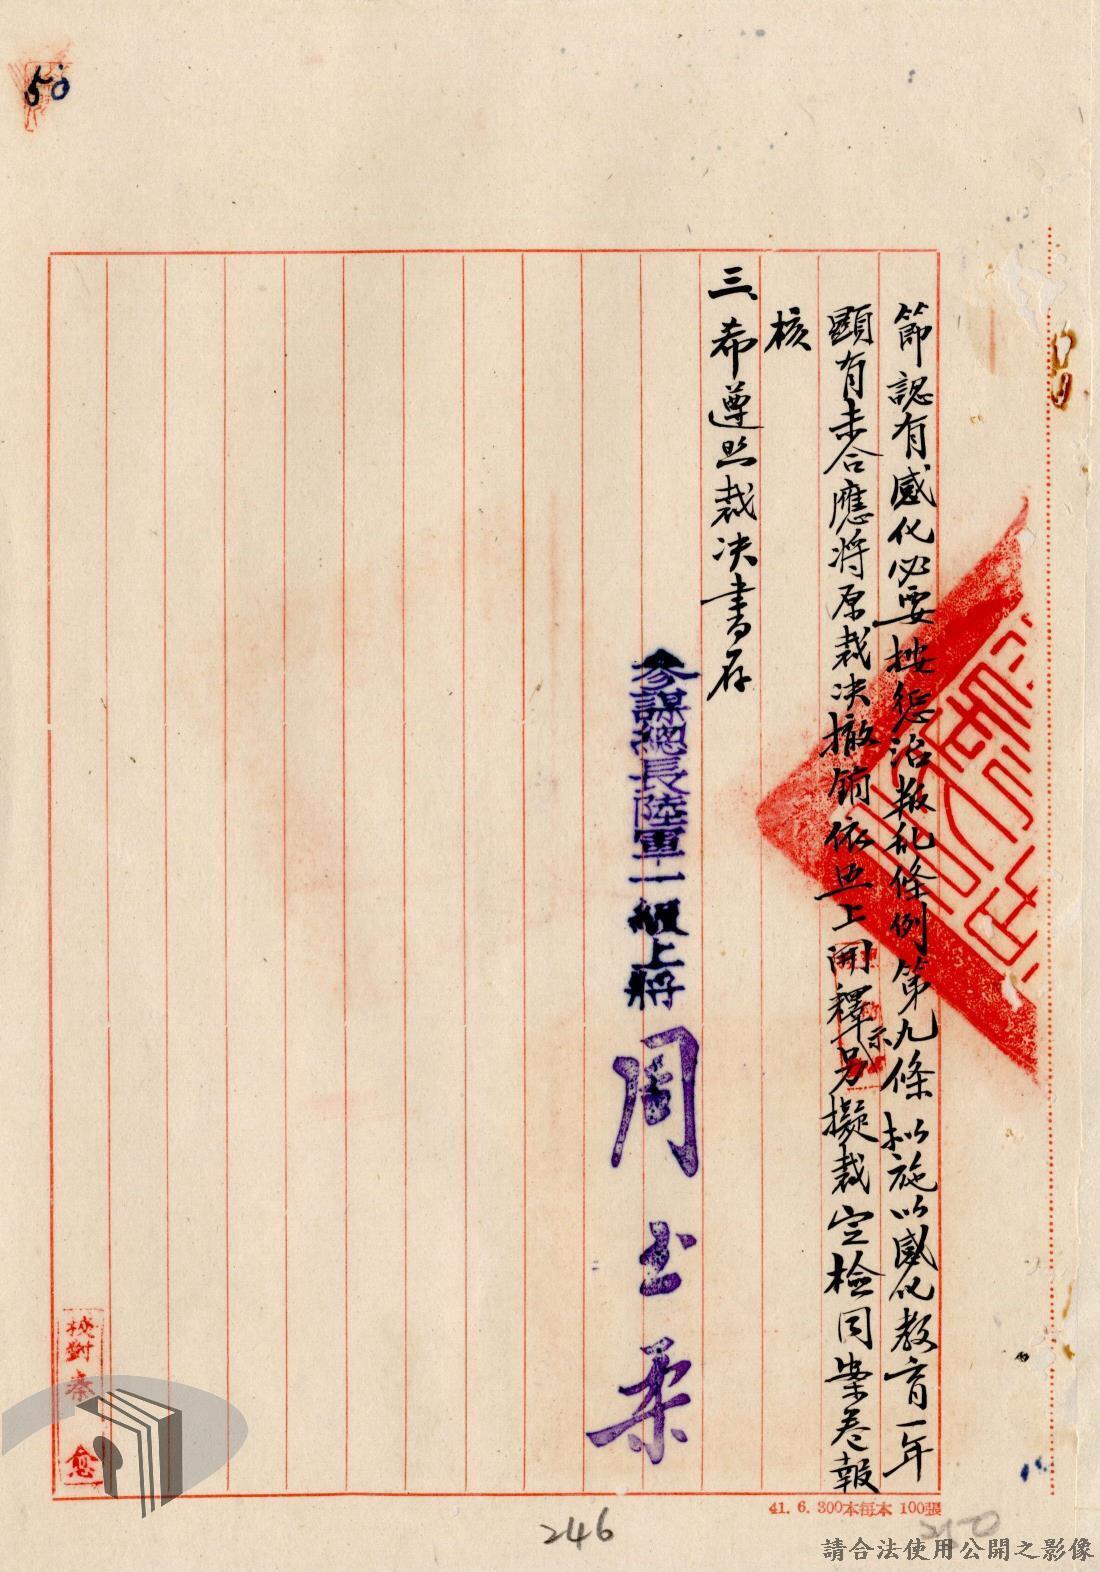 節認有感化必要按懲治叛亂條例第九條拟施以感化教育一年
顯有未合應將原裁决撤銷依照上開釋示另擬裁定檢同案卷報
核
三、希遵照裁决書存
參謀總長陸軍一級上將
周至柔
校對秦愈
50
41. 6. 300本每本 100張
246
250
請合法使用公開之影像